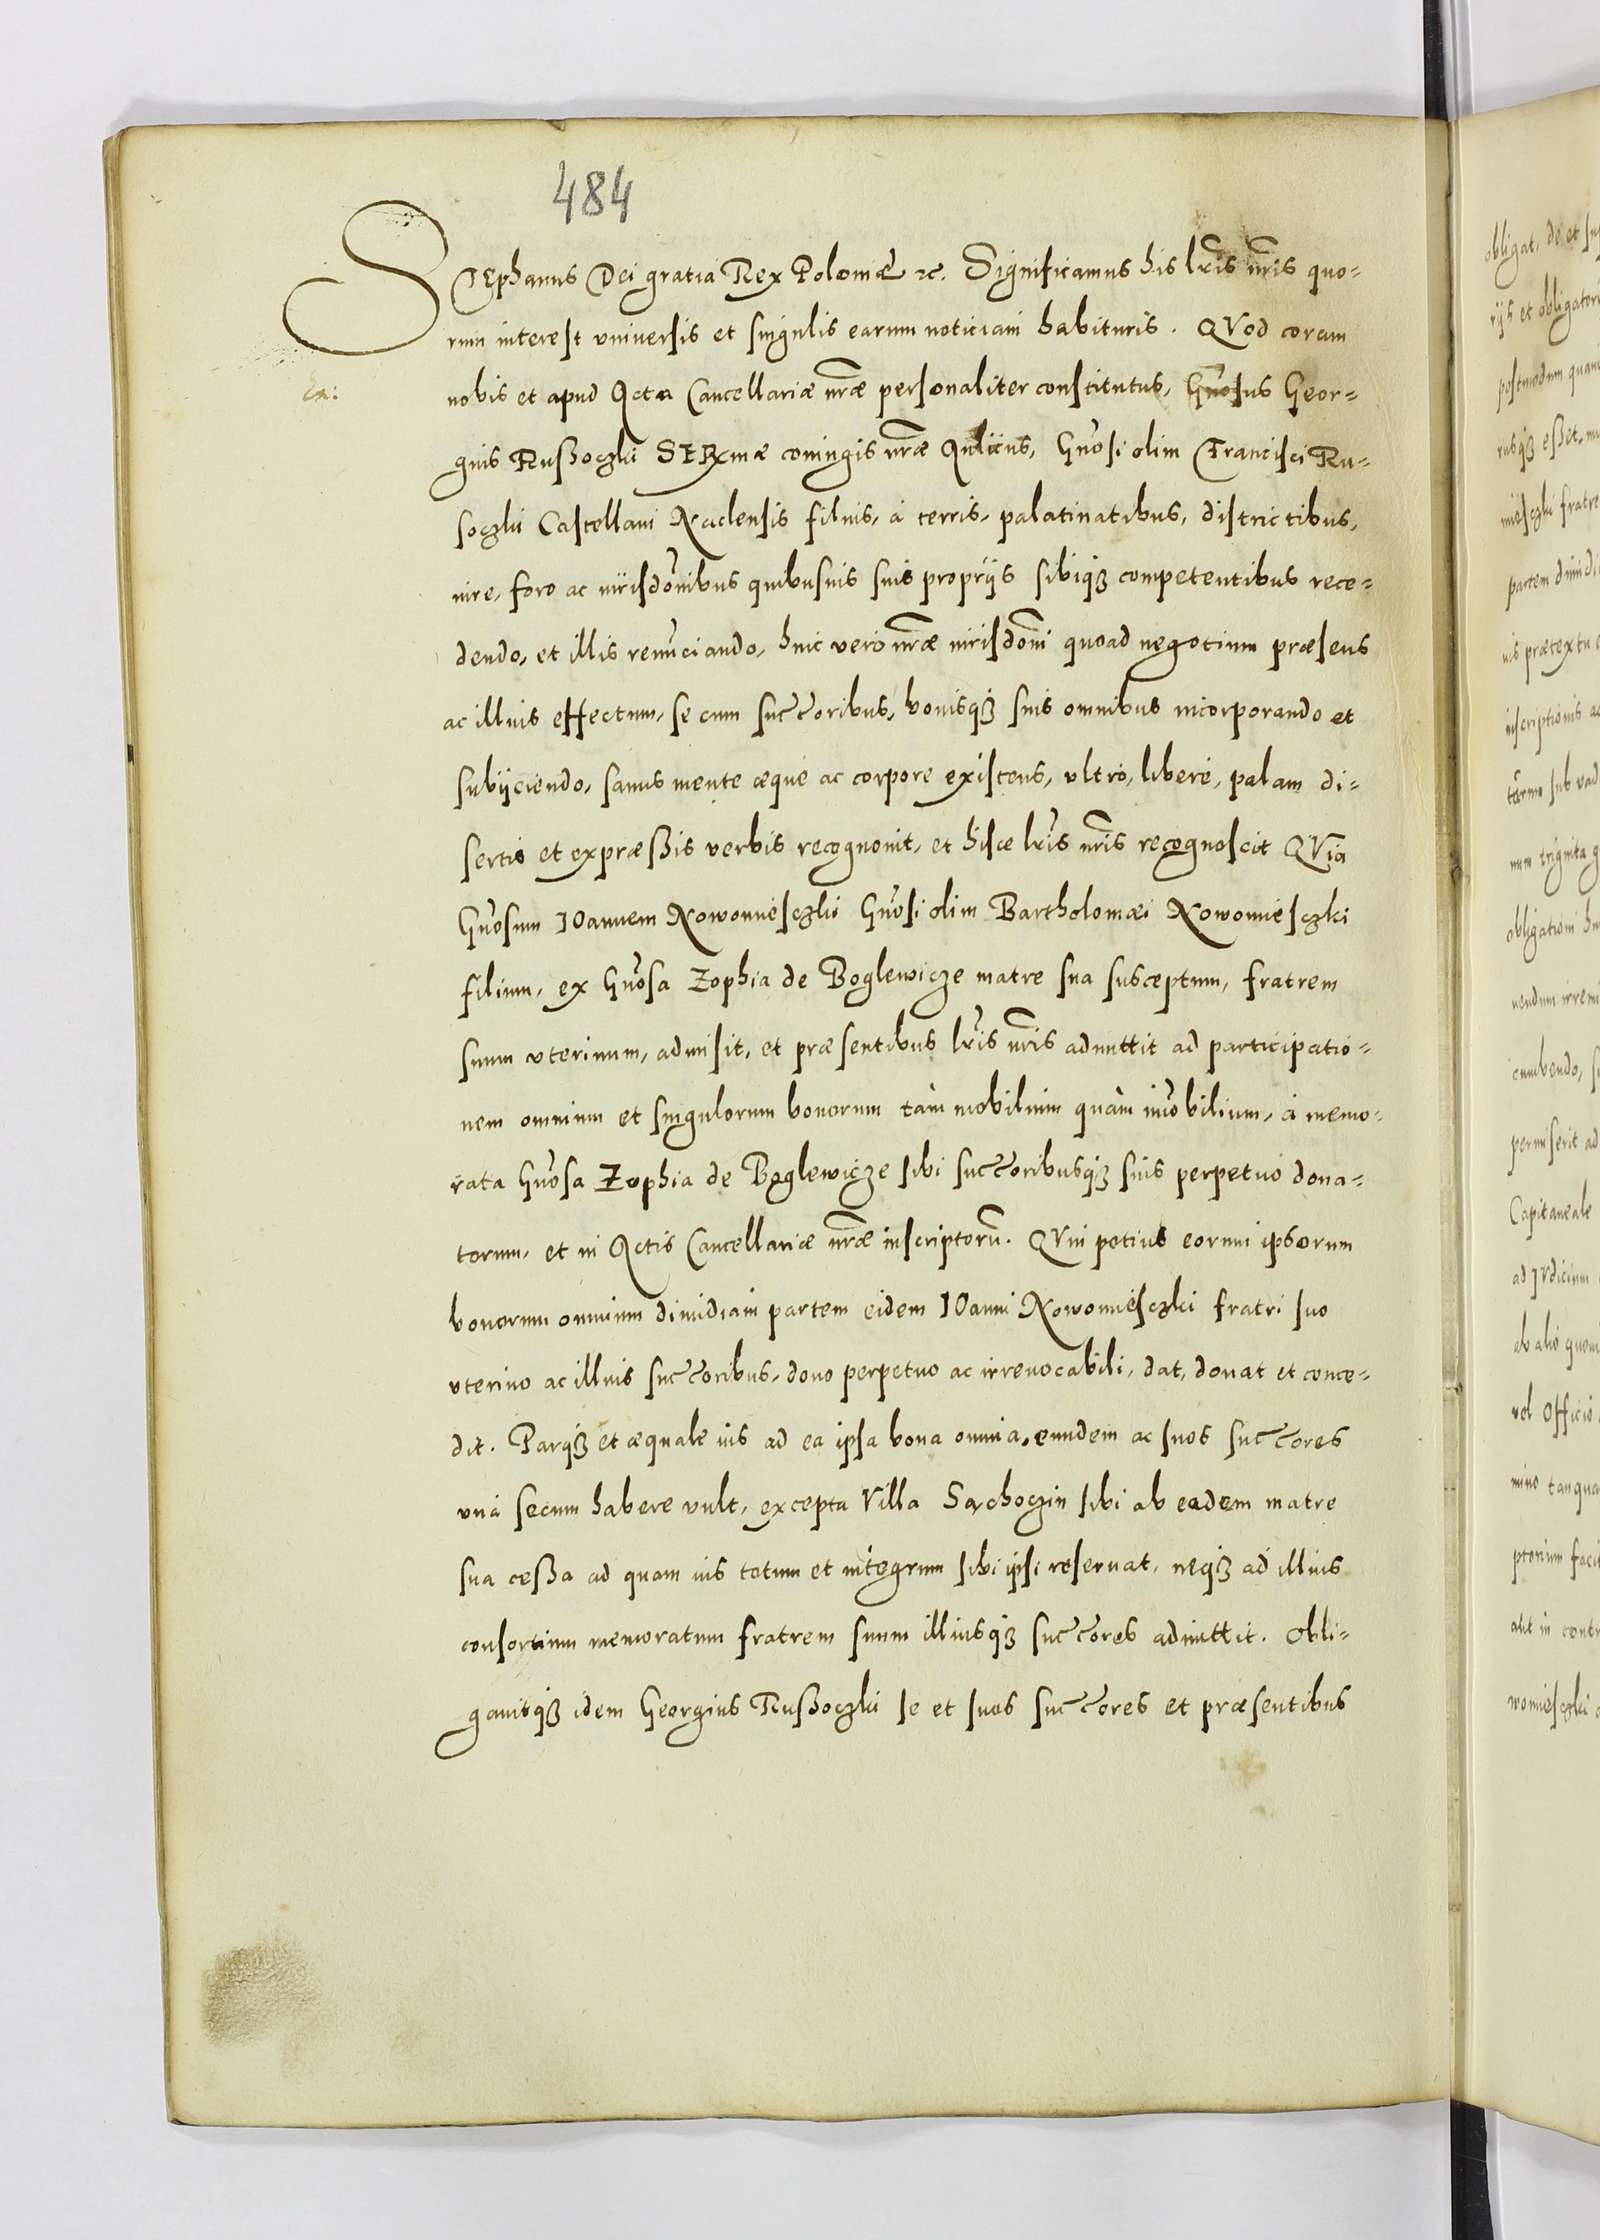 484
STEphanus Dei gratia Rex Poloniæ etc. Significamus his lr̃is nr̃is quo-
rum interest vniuersis et singulis earum noticiam habituris. QVod coram
nobis et apud Acta Cancellariæ nr̃æ personaliter constitutus, Gñosus Geor-
gius Rußoczki SERmæ coniugis nr̃æ Aulicus, Gñosi olim Francisci Ru-
soczki Castellani Naclensis filius, à terris, palatinatibus, districtibus,
iure, foro ac iurisdõnibus quibusuis suis proprijs sibiq3 competentibus rece-
dendo, et illis renũciando, huic verò nr̃æ iurisdõni quoad negotium præsens
ac illius effectum, se cum succ̃oribus, bonisq3 suis omnibus incorporando et
subijciendo, sanus mente æquè ac corpore existens, vltrò, liberè, palam di-
sertis et expræßis verbis recognouit, et hisce lr̃is nr̃is recognoscit QVia
Gñosum IOannem Nowomiesczki Gñosi olim Bartholomæi Nowomiesczki
filium, ex Gñosa Zophia de Boglewicze matre sua susceptum, fratrem
suum vterinum, admisit, et præsentibus lr̃is nr̃is admittit ad participatio-
nem omnium et singulorum bonorum tàm mobilium quàm im̃obilium, à memo-
rata Gñosa Zophia de Boglewicze sibi succ̃oribusq3 suis perpetuò dona-
torum, et in Actis Cancellariæ nr̃æ inscriptorũ. QVin potius eorum ipsorum
bonorum omnium dimidiam partem eidem IOanni Nowomiesczki fratri suo
vterino ac illius succ̃oribus, dono perpetuo ac irreuocabili, dat, donat et conce-
dit. Parq3 et æquale ius ad ea ipsa bona omnia, eundem ac suos succ̃ores
vnà secum habere vult, excepta Villa Sochoczin sibi ab eadem matre
sua ceßa ad quam ius totum et integrum sibi ipsi reseruat, neq3 ad illius
consortium memoratum fratrem suum illiusq3 succ̃ores admittit. Obli-
gauitq3 idem Georgius Rußoczki se et suos succ̃ores et præsentibus
obligat, de et
rijs et obligatori
postmodum
rusq3 eßet,
miesczki fratre
partem dimidi
uis prætextu
inscriptionis ac
sub vad
num triginta g
obligationi
uendum
cumbendo,
permiserit ad
Capitaneale
ad IVdicium
ab alio
vel Officio
mino tanqua
ptorium
aut in contu
womiesczki